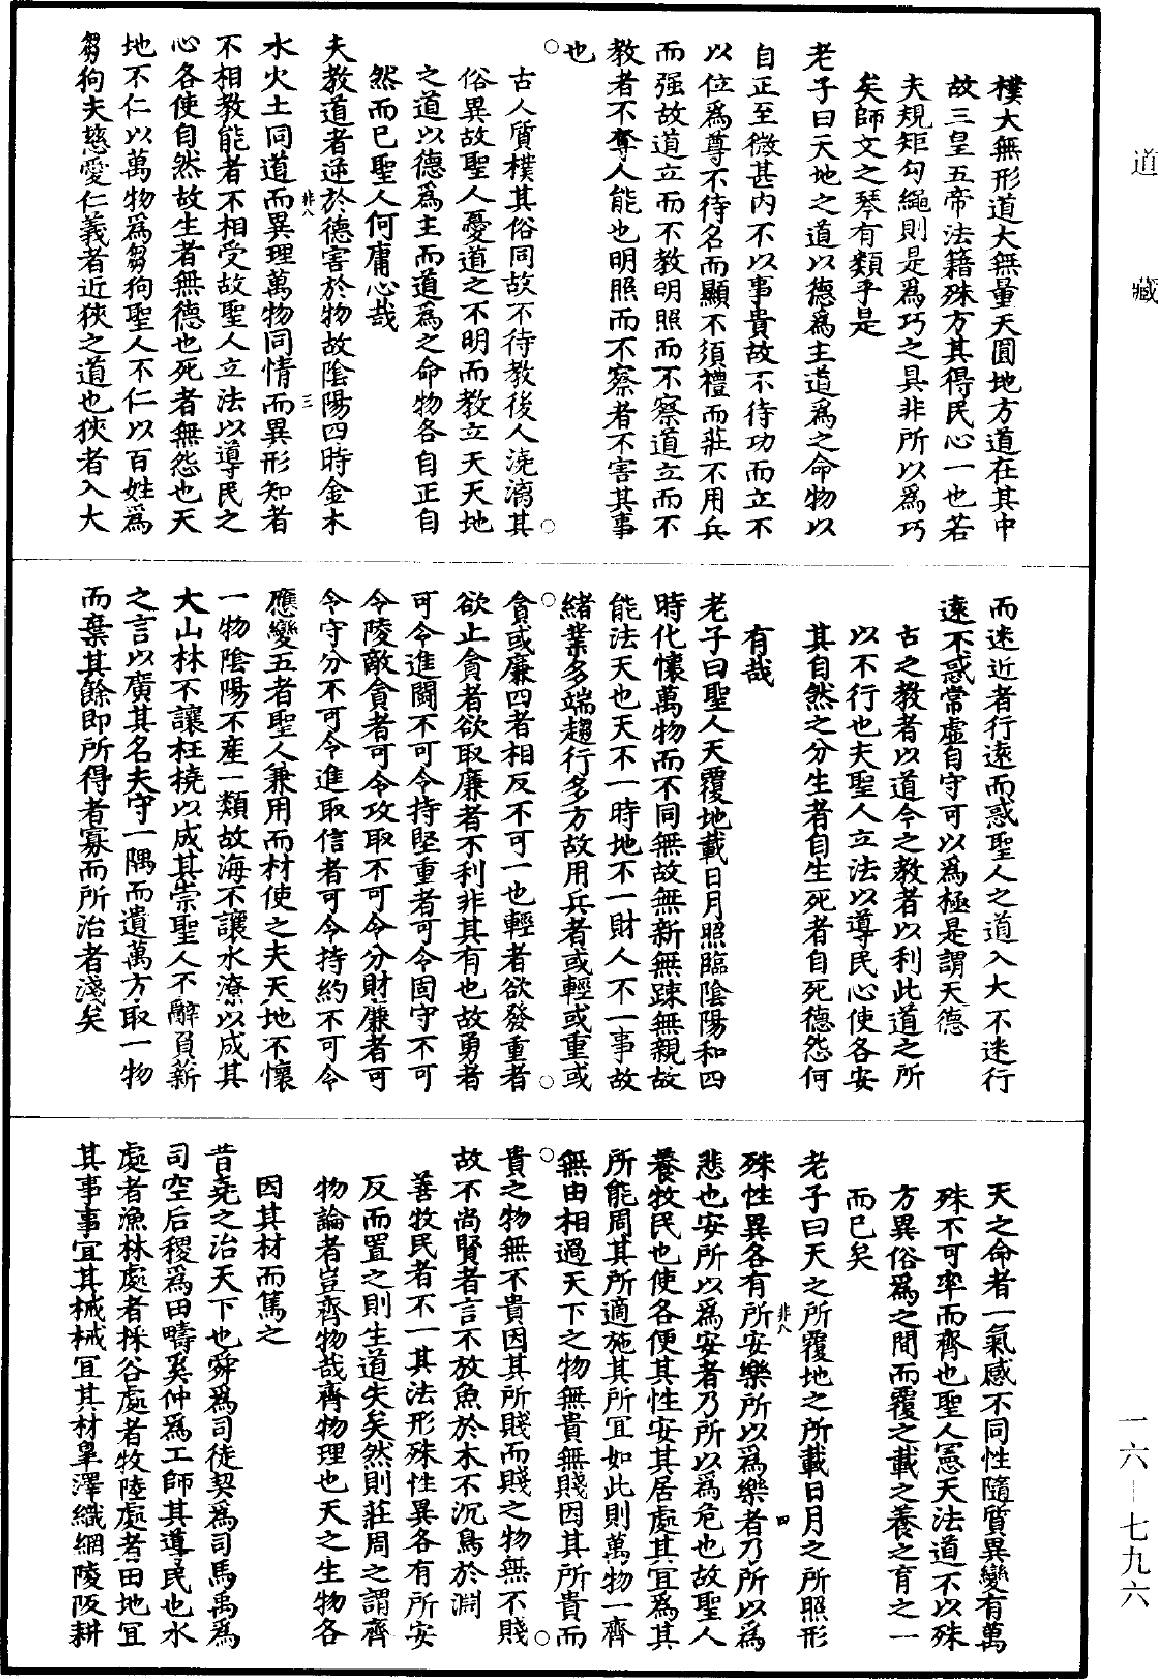 道藏
樸大無形道大無量天圓地方道在其中
故三皇五帝法籍殊方其得民心一也若
夫規矩勾繩則是為巧之具非所以為巧
矣師文之琴有類乎是
老子曰天地之道以德為主道為之命物以
自正至微甚内不以事貴故不待功而立不
以位為尊不待名而顯不須禮而莊不用兵
而强故道立而不教明照而不察道立而不
教者不奪人能也明照而不察者不害其事
也
古人質樸其俗同故不待教後人澆漓其
俗異故聖人憂道之不明而教立天天地
之道以德為主而道為之命物各自正自
然而已聖人何庸心哉
夫教道者逆於德害於物故陰陽四時金木
水火土同道而異理萬物同情而異形知者
不相教能者不相受故聖人立法以導民之
心各使自然故生者無德也死者無怨也天
地不仁以萬物為芻狗聖人不仁以百姓為
芻狗夫慈愛仁義者近狹之道也狹者入大
非八
三
而迷近者行遠而惑聖人之道入大不迷行
遠不惑常虛自守可以為極是謂天德
古之教者以道今之教者以利此道之所
以不行也夫聖人立法以導民心使各安
其自然之分生者自生死者自死德怨何
有哉
老子曰聖人天覆地載日月照臨陰陽和四
時化懷萬物而不同無故無新無踈無親故
能法天也天不一時地不一財人不一事故
緒業多端趨行多方故用兵者或輕或重或
貪或廉四者相反不可一也輕者欲發重者
欲止貪者欲取廉者不利非其有也故勇者
可令進鬪不可令持堅重者可令固守不可
令陵敵貪者可令攻取不可令分財廉者可
令守分不可令進取信者可令持約不可令
應變五者聖人兼用而材使之夫天地不懷
一物陰陽不産一類故海不讓水潦以成其
大山林不讓枉橈以成其崇聖人不辭負薪
之言以廣其名夫守一隅而遺萬方取一物
而棄其餘即所得者寡而所治者淺矣
天之命者一氣感不同性隨質異變有萬
殊不可率而齊也聖人憲天法道不以殊
方異俗為之間而覆之載之養之育之一
而已矣
老子曰天之所覆地之所載日月之所照形
殊性異各有所安樂所以為樂者乃所以為
悲也安所以為安者乃所以為危也故聖人
養牧民也使各便其性安其居處其宜為其
所能周其所適施其所宜如此則萬物一齊
無由相過天下之物無貴無賤因其所貴而
貴之物無不貴因其所賤而賤之物無不賤
故不尚賢者言不放魚於木不沉鳥於淵
善牧民者不一其法形殊性異各有所安
反而置之則生道失矣然則莊周之謂齊
物論者豈齊物哉齊物理也天之生物各
因其材而篤之
昔堯之治天下也舜為司徒契為司馬禹為
司空后稷為田疇奚仲為工師其道民也水
處者漁林處者採谷處者牧陸處者田地宜
其事事宜其械械宜其材臯澤織網陵阪耕
非八
四
一六—七九六